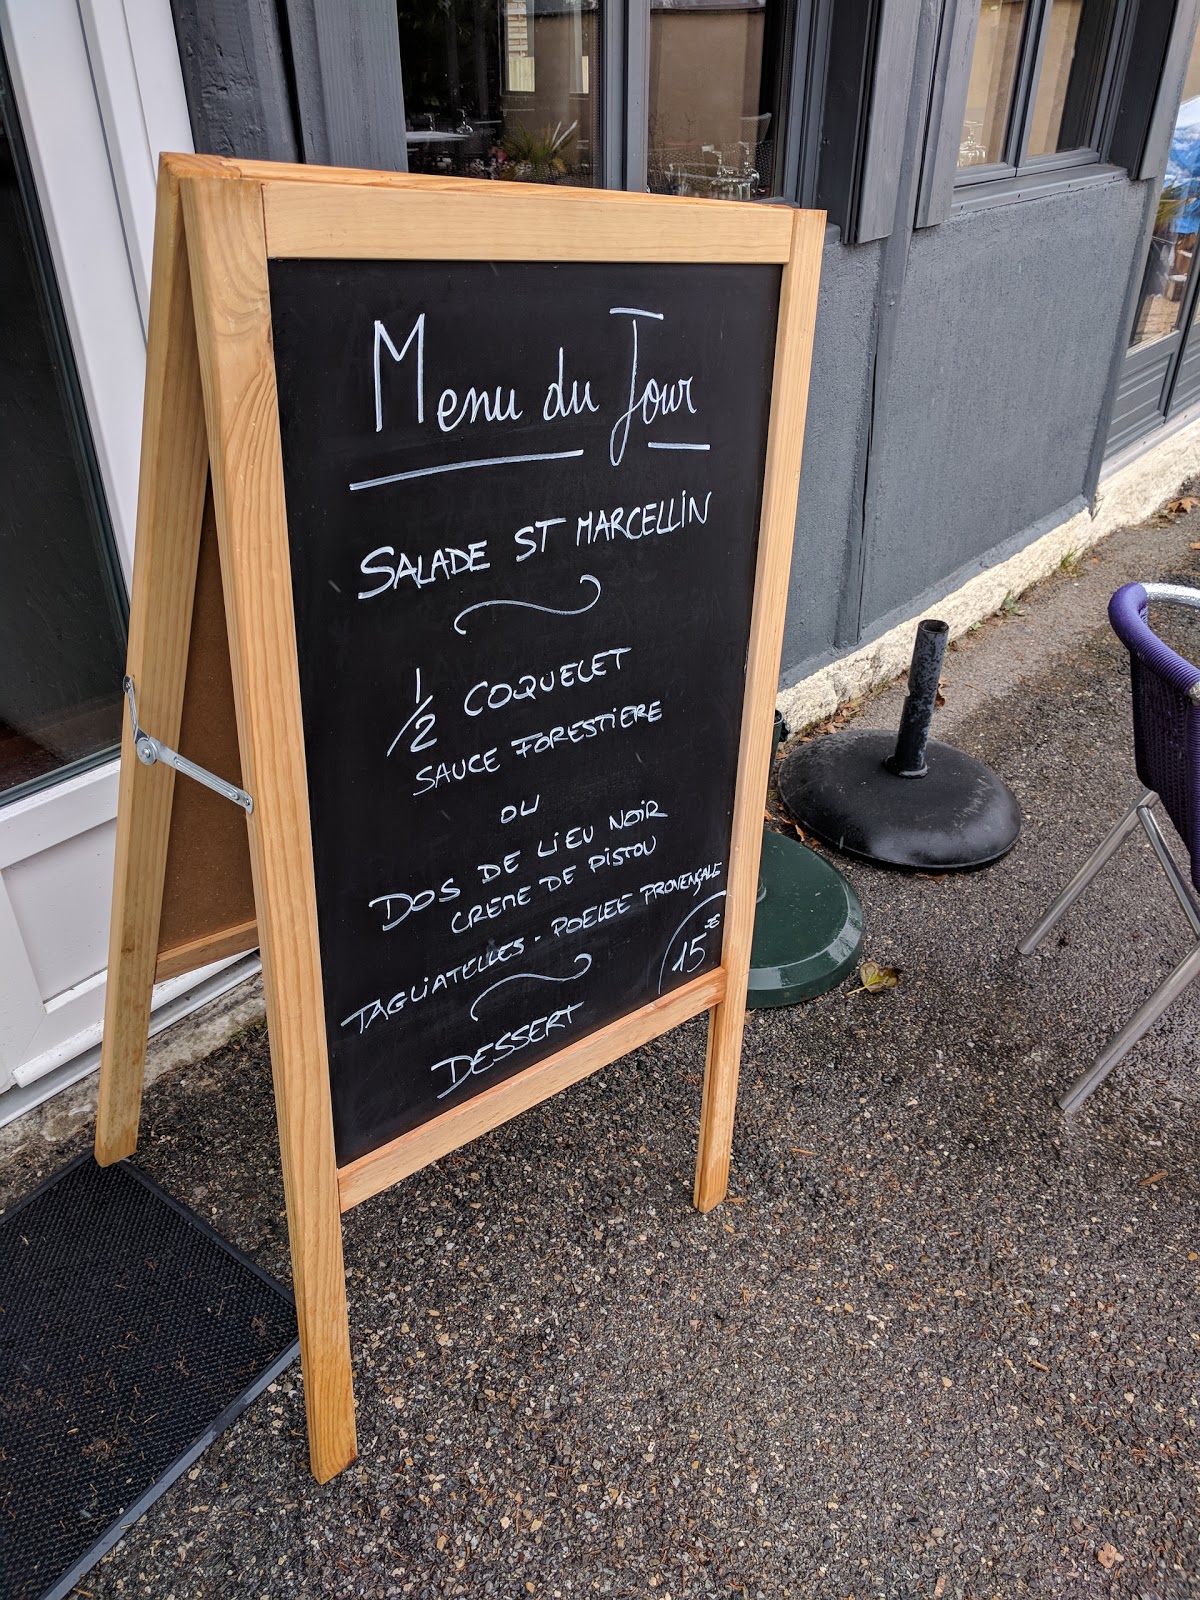 Menu du Jour
SALADE ST MARCELLIN
1/2 COQUELET
SAUCE FORESTIERE
OU
DOS DE LIEU NOIR
CREME DE PISTOU
TAGLIATELLES - POELEE PROVENÇALE
15
DESSERT